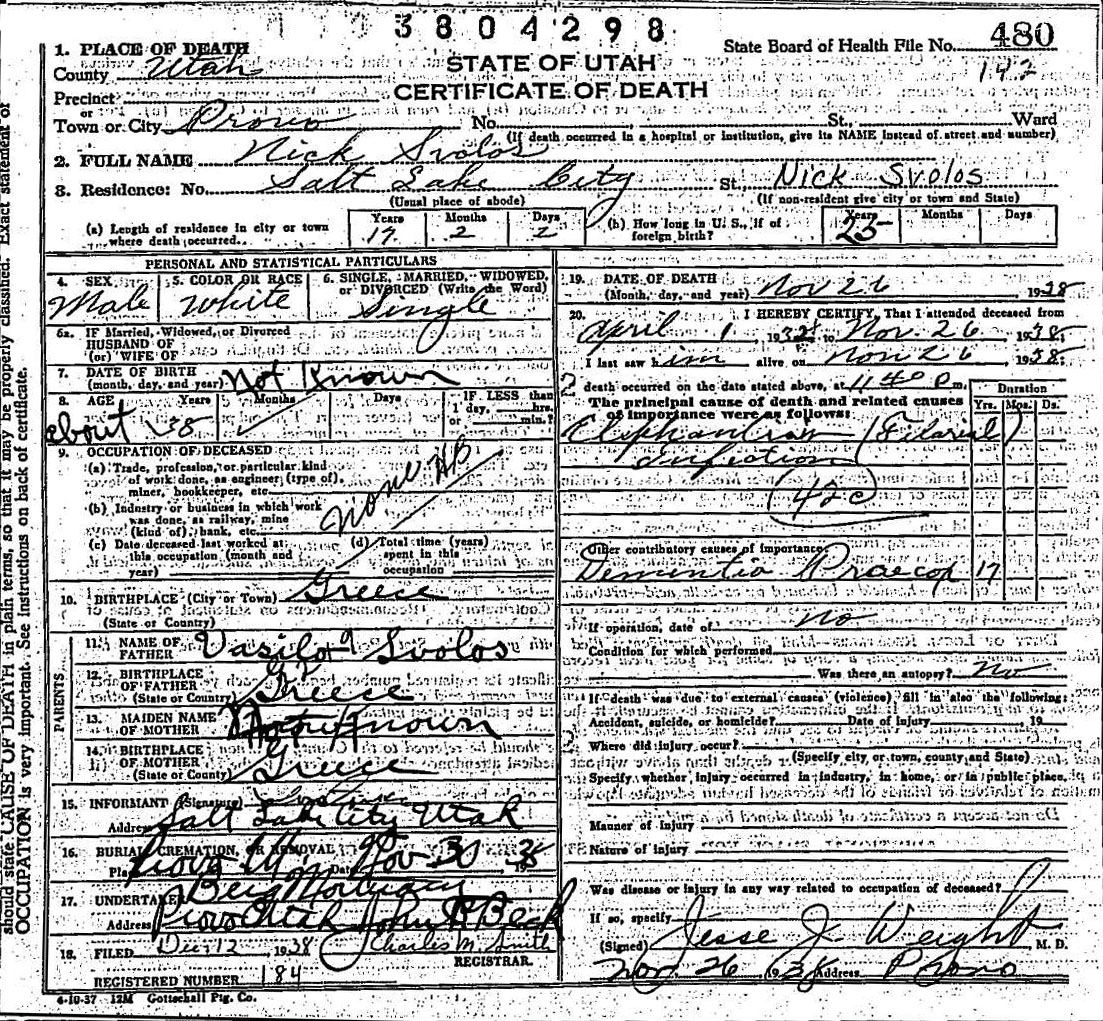 3804298
State Board of Health File No. 480
142
1. PLACE OF DEATH
County Utah
STATE OF UTAH
CERTIFICATE OF DEATH
Precinct
or
Town or City Provo No. St., Ward
(If death occurred in a hospital or institution, give its NAME instead of street and number)
2. FULL NAME Nick Svolos
3. Residence: No. Salt Lake City St., Nick Svolos
(Usual place of abode) (If non-resident give city or town and State)
(a) Length of residence in city or town where death occurred. Years 17 Months 2 Days 2 (b) How long in U. S., if of foreign birth? Years 25 Months Days
PERSONAL AND STATISTICAL PARTICULARS
4. SEX Male 5. COLOR OR RACE White 6. SINGLE, MARRIED, WIDOWED, or DIVORCED (Write the Word) Single
6a. IF Married, Widowed, or Divorced
HUSBAND OF
(or) WIFE OF
7. DATE OF BIRTH
(month, day, and year) Not Known
8. AGE Years Months Days IF LESS than
1 day, hrs.
or min.?
about 38
9. OCCUPATION OF DECEASED
(a) Trade, profession, or particular kind
of work done, as engineer (type of),
miner, bookkeeper, etc. None
(b) Industry or business in which work
was done, as railway, mine
(kind of), bank, etc.
(c) Date deceased last worked at
this occupation (month and
year)
(d) Total time (years)
spent in this
occupation
10. BIRTHPLACE (City or Town) Greece
(State or Country)
PARENTS
11. NAME OF
FATHER Svolos
12. BIRTHPLACE
OF FATHER
(State or Country) Greece
13. MAIDEN NAME
OF MOTHER Not Known
14. BIRTHPLACE
OF MOTHER
(State or County) Greece
15. INFORMANT (Signature)
Address Salt Lake City Utah
16. BURIAL, CREMATION, OR REMOVAL
Place Provo Date Nov 30 1938
17. UNDERTAKER Berg Mortuary
Address Provo Utah John H Beck
18. FILED Dec 12 1938 Charles M. Smith
REGISTRAR.
REGISTERED NUMBER 184
4-10-37 12M Gottschall Ptg. Co.
19. DATE OF DEATH
(Month, day, and year) Nov 26 1938
20. I HEREBY CERTIFY, That I attended deceased from
April 1 to Nov. 26 1938.
I last saw him alive on Nov 26 1938.
death occurred on the date stated above, at 11 40 P m.
The principal cause of death and related causes
of importance were as follows: Duration
Yrs. Mos. Ds.
(Filarial)
infection
(42c)
Other contributory causes of importance
Dementia Praecox 17
If operation, date of no
Condition for which performed
Was there an autopsy? No
If death was due to external causes (violence) fill in also the following:
Accident, suicide, or homicide? Date of injury , 19
Where did injury occur?
(Specify city or town, county and State)
Specify whether injury occurred in industry, in home, or in public place.
Manner of injury
Nature of injury
Was disease or injury in any way related to occupation of deceased?
If so, specify
(Signed) Jesse J Weight M. D.
Nov. 26 1938 Address Provo
should state CAUSE OF DEATH in plain terms, so that it may be properly classified. Exact statement of
OCCUPATION is very important. See instructions on back of certificate.